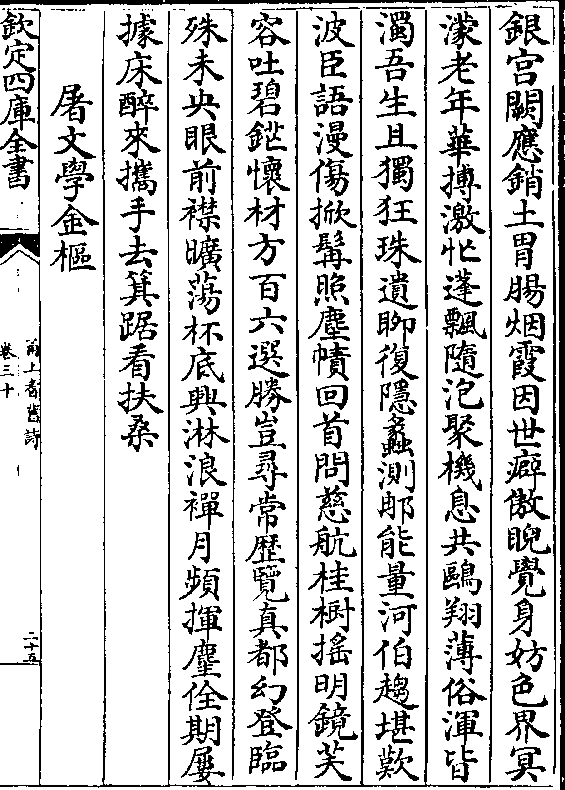 銀宫闕應銷土胃腸烟霞因世癖傲睨覺身妨色界冥
濛老年華搏激忙蓬飄隨泡聚機息共鷗翔薄俗渾皆
濁吾生且獨狂珠遺聊復隱蠡測那能量河伯趨堪歎
波臣語漫傷掀髯照塵幘回首問慈航桂樹揺明鏡芙
容吐碧鋩懷材方百六選勝豈尋常歴覽真都幻登臨
殊未央眼前襟曠蕩杯底興淋浪禪月頻揮麈佺期屢
據床醉來攜手去箕踞看扶桑
屠文學金樞
欽定四庫全書
甬上耆舊詩
卷三十
二十五